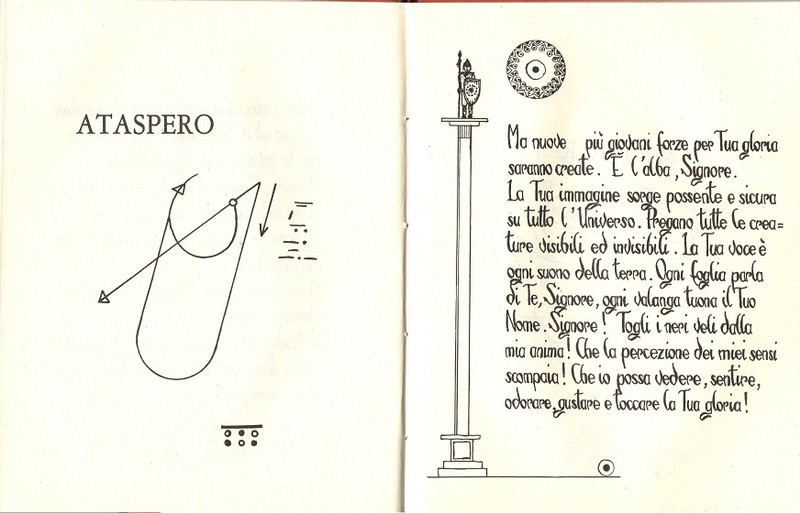 ATASPERO
Ma nuove più giovani forze per Tua gloria
saranno create. È l'alba, Signore.
La Tua immagine sorge possente e sicura
su tutto l'Universo. Pregano tutte le crea=
ture visibili ed invisibili. La Tua voce è
ogni suono della terra. Ogni foglia parla
di Te, Signore, ogni valanga tuona il Tuo
Nome. Signore! Togli i neri veli dalla
mia anima! Che la percezione dei miei sensi
scompaia! Che io possa vedere, sentire,
odorare, gustare e toccare la Tua gloria!